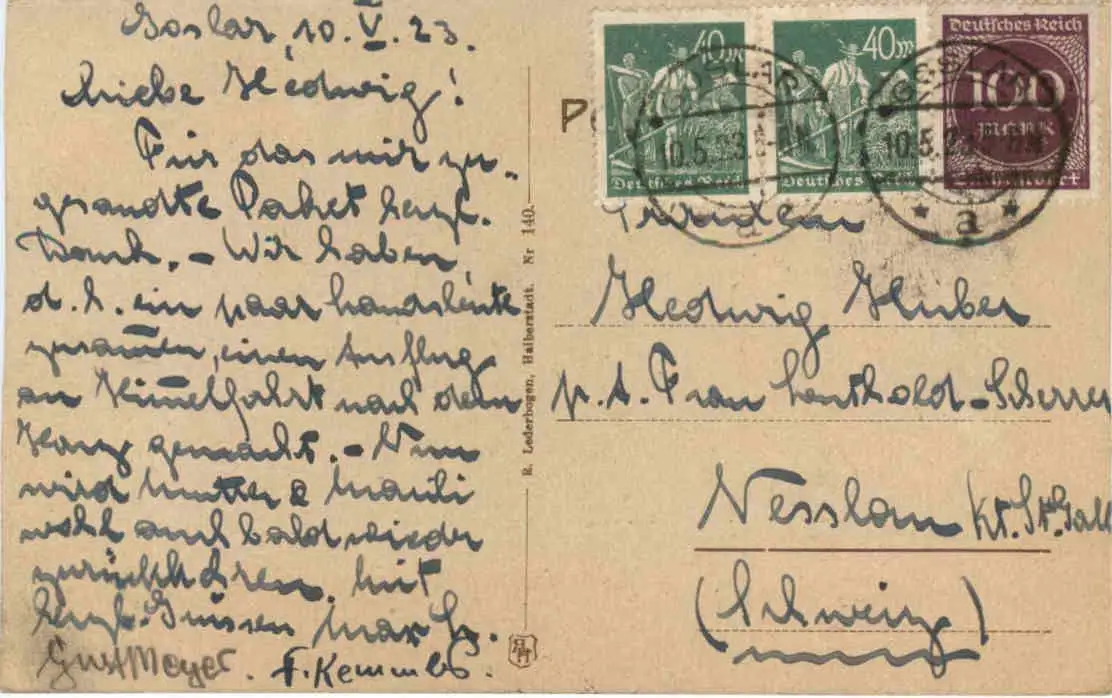 Goslar, 10. V. 23.
Liebe Hedwig!
Für das mir zu-
gesandte Paket herzl.
Dank. – Wir haben,
d. h. ein paar Landsleute
zusam̅en, einen Ausflug
an Him̅elfahrt nach dem
Harz gemacht. – Nun
wird Mutter & Mauli
wohl auch bald wieder
zurückkehren. Mit
herzl. Grüssen Max
Gust Meyer. F. Kemmler
R. Lederbogen, Halberstadt. Nr 140.
40 M
Deutsches Reich
40 M
Deutsches Reich
Deutsches Reich
100
MARK
GOSLAR
10.5.23
a
GOSLAR
10.5.23
* a *
Fräulein
Hedwig Huber
p. A. Frau Leuthold-Scherrer
Nesslau Kt. St. Gall
(Schweiz)